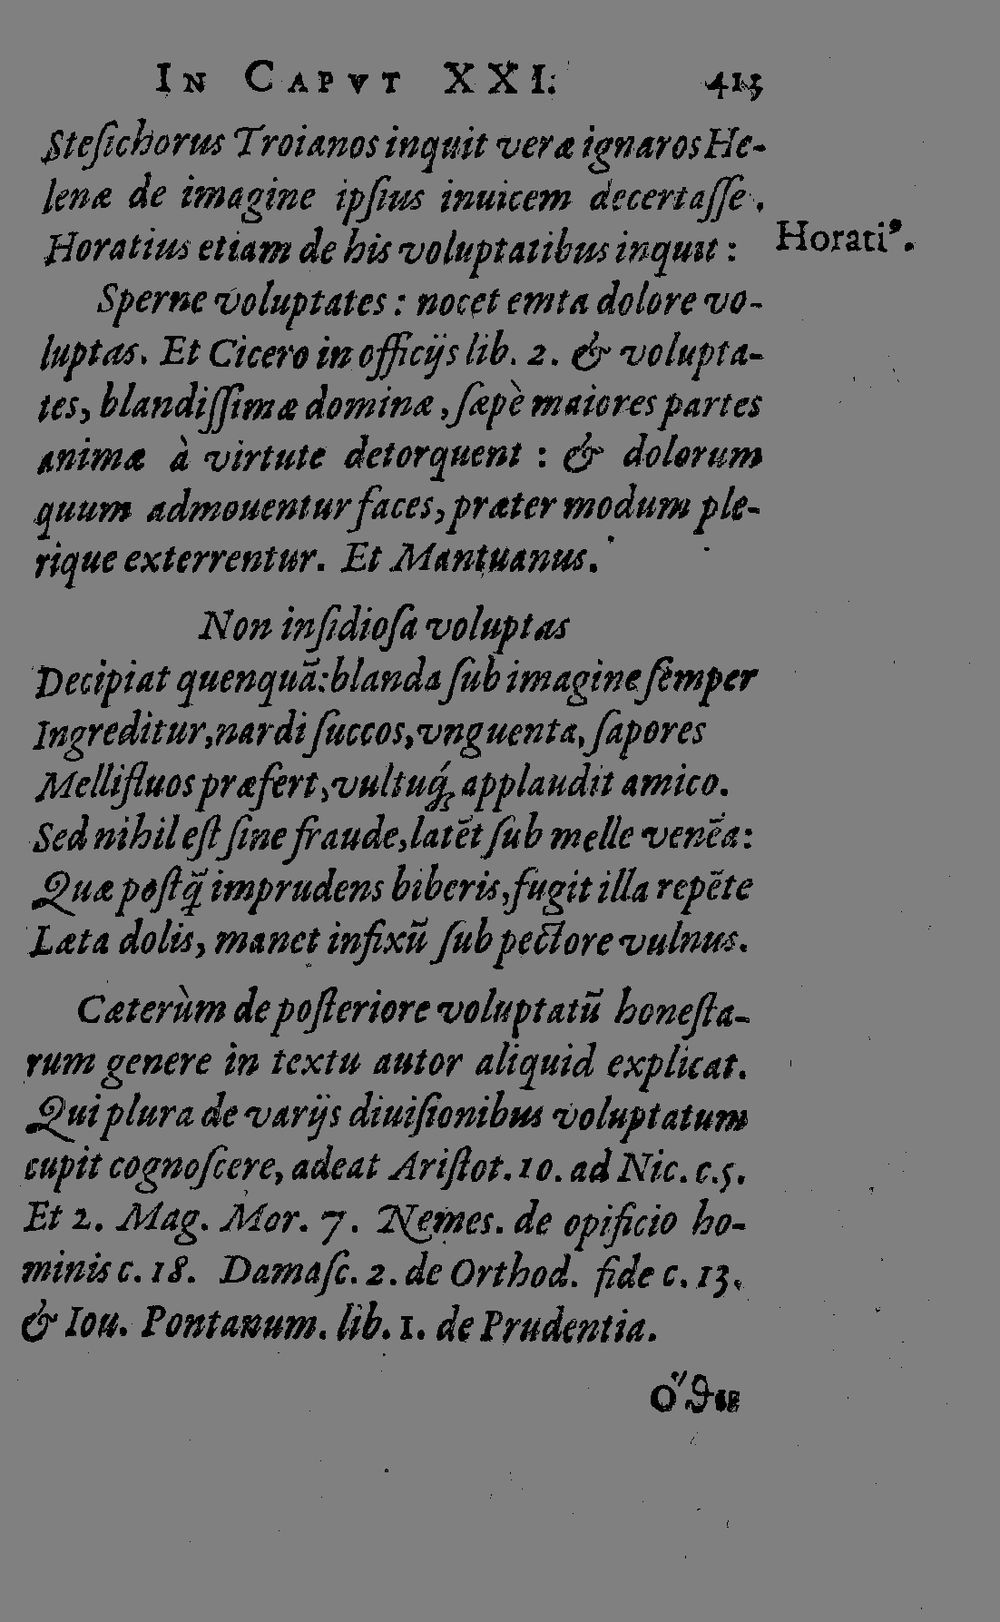 IN CAPVT XXI. 413
Steſichorus Troianos inquit veræ ignaros He-
lenæ de imagine ipſius inuicem decertaſſe.
Horatius etiam de his voluptatibus inquit :
Horati⁹.
Sperne voluptates : nocet emta dolore vo-
luptas. Et Cicero in officijs lib. 2. & volupta-
tes, blandiſſimæ dominæ, ſæpè maiores partes
animæ à virtute detorquent : & dolorum
quum admouentur faces, præter modum ple-
rique exterrentur. Et Mantuanus.
Non inſidioſa voluptas
Decipiat quenquã: blanda ſub imagine ſemper
Ingreditur, nardi ſuccos, vnguenta, ſapores
Mellifluos præfert, vultuq́; applaudit amico.
Sed nihil eſt ſine fraude, latẽt ſub melle venẽa:
Quæ poſtq̃ imprudens biberis, fugit illa repẽte
Læta dolis, manet infixũ ſub pectore vulnus.
Cæterùm de poſteriore voluptatũ honeſta-
rum genere in textu autor aliquid explicat.
Qui plura de varijs diuiſionibus voluptatum
cupit cognoſcere, adeat Ariſtot. 10. ad Nic. c.5.
Et 2. Mag. Mor. 7. Nemes. de opificio ho-
minis c. 18. Damaſc. 2. de Orthod. fide c. 13.
& Iou. Pontanum. lib. 1. de Prudentia.